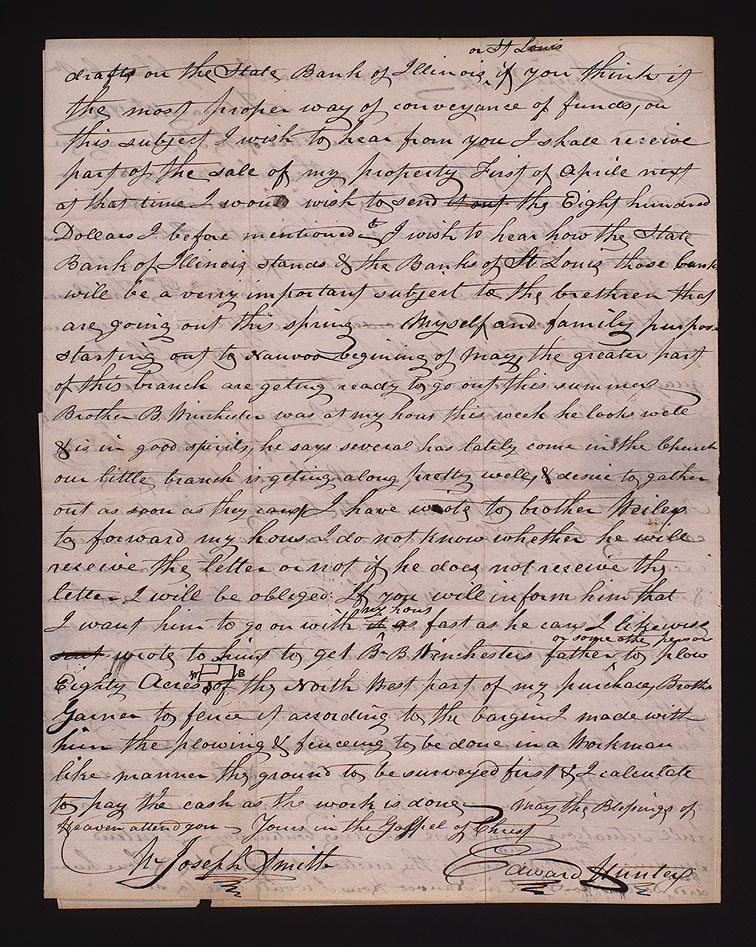 or St Louis
drafts on the State Bank of Illinois, if you think it
the most proper way of conveyance of funds, on
this subject I wish to hear from you I shall receive
part of the sale of my property First of Aprile next
at that time I would wish to send it out the Eight hundred
Dollars I before mentioned & I wish to hear how the State
Bank of Illinois stands & the Banks of St Louis those bank
will be a very important subject to the brethren that
are going out this spring Myself and family purpose
starting out to Nauvoo begining of May, the greater part
of this branch are geting ready to go out this summer
Brother B. Winchester was at my hous this week he looks well
& is in good spirits, he says several has lately come in the Church
our little branch is geting along pretty well, & desire to gather
out as soon as they can, I have wrote to brother Weiler
to forward my hous I do not know whether he will
receive the letter or not if he does not receive the
letter I will be obliged If you will inform him that
my hous
I want him to go on with it as fast as he can I likewise
or some other person
wrote to him to get Br B. Winchesters father to plow
Eighty Acres of the North West part of my purchase, Brother
Garner to fence it according to the bargin I made with
him the plowing & fenceing to be done in a Workman
like manner the ground to be surveyed first & I calculate
to pay the cash as the work is done May the Blessings of
Heaven attend you Yours in the Gospel of Christ
Joseph Smith Edward Hunter